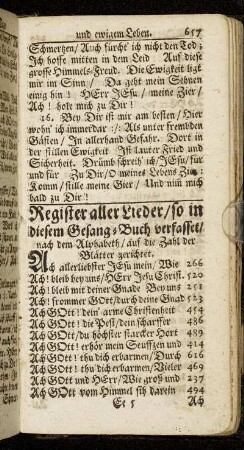 und ewigem Leben. 657
Schmertzen/ Auch fürcht' ich nicht den Tod;
Ich hoffe mitten in dem Leid Auf diese
grosse Himmels-Freud. Die Ewigkeit ligt
mir im Sinn/ Da geht mein Sehnen
einig hin! HErr JEsu/ meine Zier/
Ach! holt mich zu Dir!
16. Bey Dir ist mir am besten/ Hier
wohn' ich immerdar :/: Als unter fremdden
Gästen/ In allerhand Gefahr. Dort in
der stillen Ewigkeit Ist lauter Fried und
Sicherheit. Drümb schreih' ich/ JEsu/ für
und für Zu Dir/ O meines Lebens Zier:
Komm/ stille meine Gier/ Und nim mich
bald zu Dir!
Register aller Lieder/ so in
diesem Gesang-Buch verfasset/
nach dem Alphabeth/ auf die Zahl der
Blätter gerichtet.
Ach allerliebster JEsu mein/ Wie 266
Ach! bleib bey uns/ HErr JEsu Christ. 520
Ach! bleib mit deiner Gnade Bey uns 251
Ach! frommer GOtt/ durch deine Gnad 523
Ach GOtt! dein' arme Christenheit 454
Ach GOtt! die Pest/ dein scharffer 486
Ach GOtt/ du höchster starcker Hort 489
Ach GOtt! erhör mein Seuffzen und 414
Ach GOtt! thu dich erbarmen/ Durch 616
Ach GOtt! thu dich erbarmen/ Vieler 469
Ach GOtt und HErr/ Wie groß und 237
Ach GOtt vom Himmel sih darein 494
Et 5 Ach